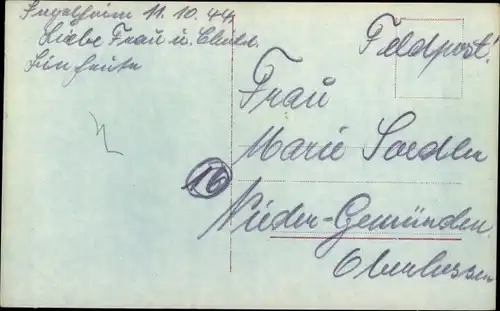 Ingelheim 11.10.44.
Liebe Frau u.
Bin heute
Feldpost!
Frau
Marie
16
Nieder-Gemünden
Oberhessen